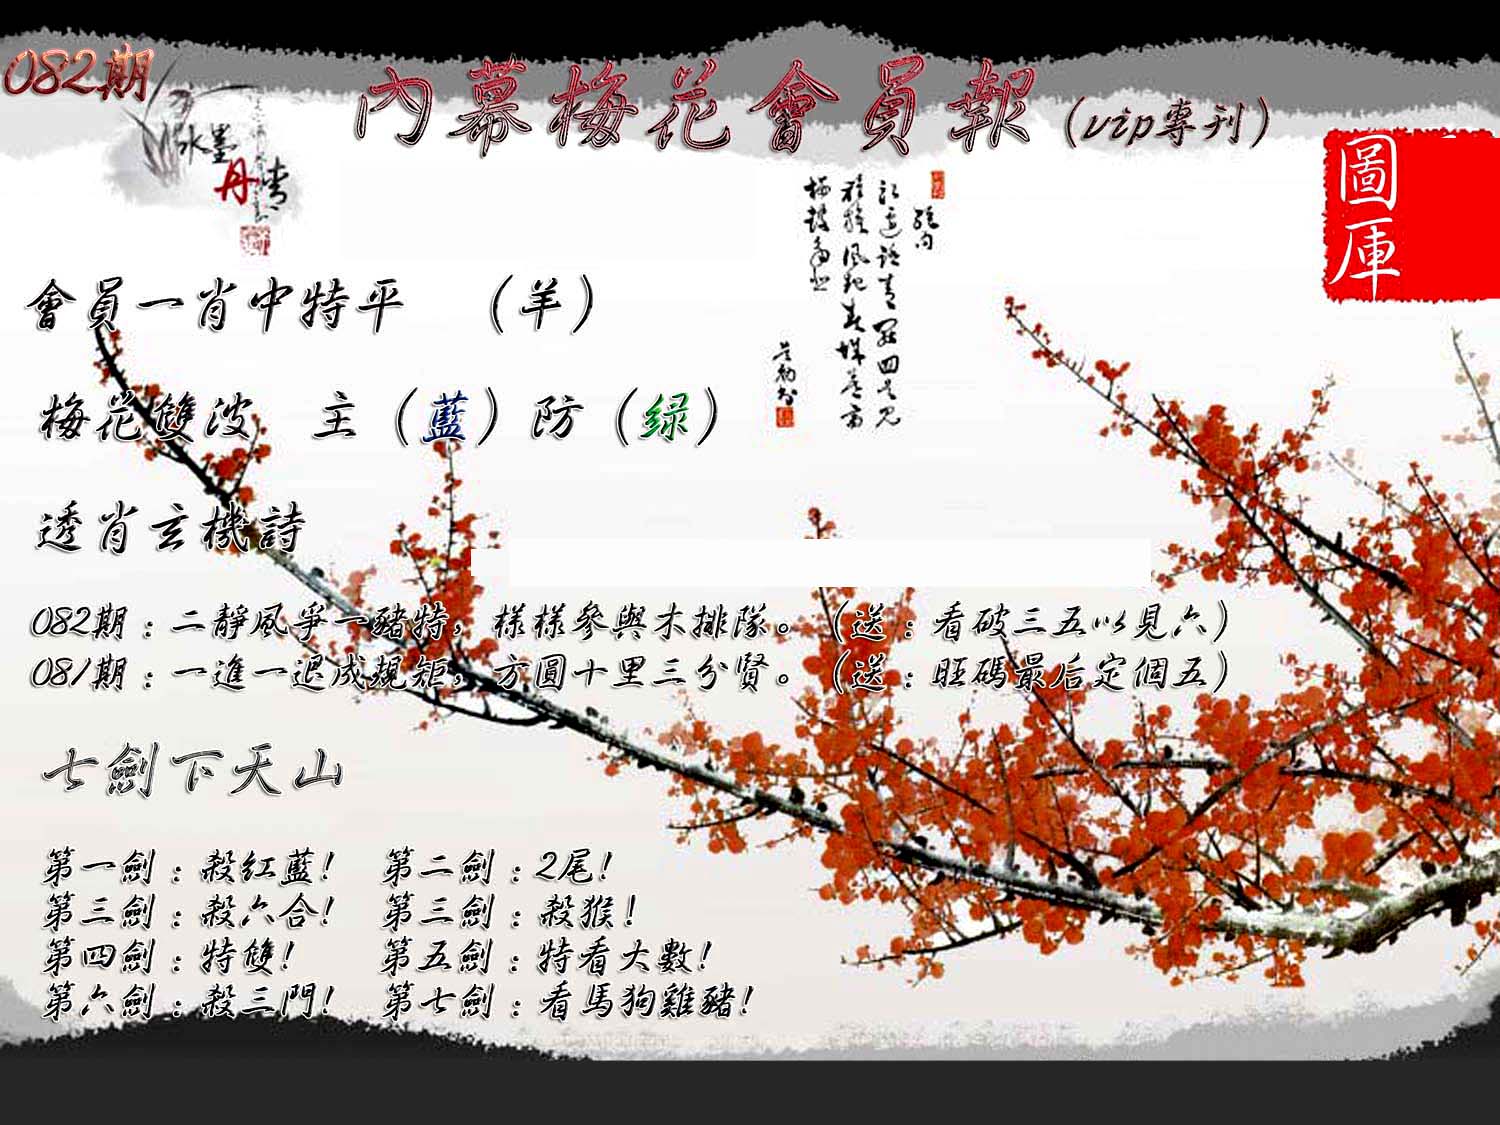 082期
內幕梅花會員報（vip專刊）
水墨
丹青
圖庫
會員一肖中特平　（羊）
梅花雙波　主（藍）防（绿）
透肖玄機詩
082期：二靜風爭一豬特，樣樣參與木排隊。（送：看破三五以見六）
081期：一進一退成規矩，方圓十里三分賢。（送：旺碼最后定個五）
七劍下天山
第一劍：殺紅藍！　第二劍：2尾！
第三劍：殺六合！　第三劍：殺猴！
第四劍：特雙！　第五劍：特看大數！
第六劍：殺三門！　第七劍：看馬狗雞豬！